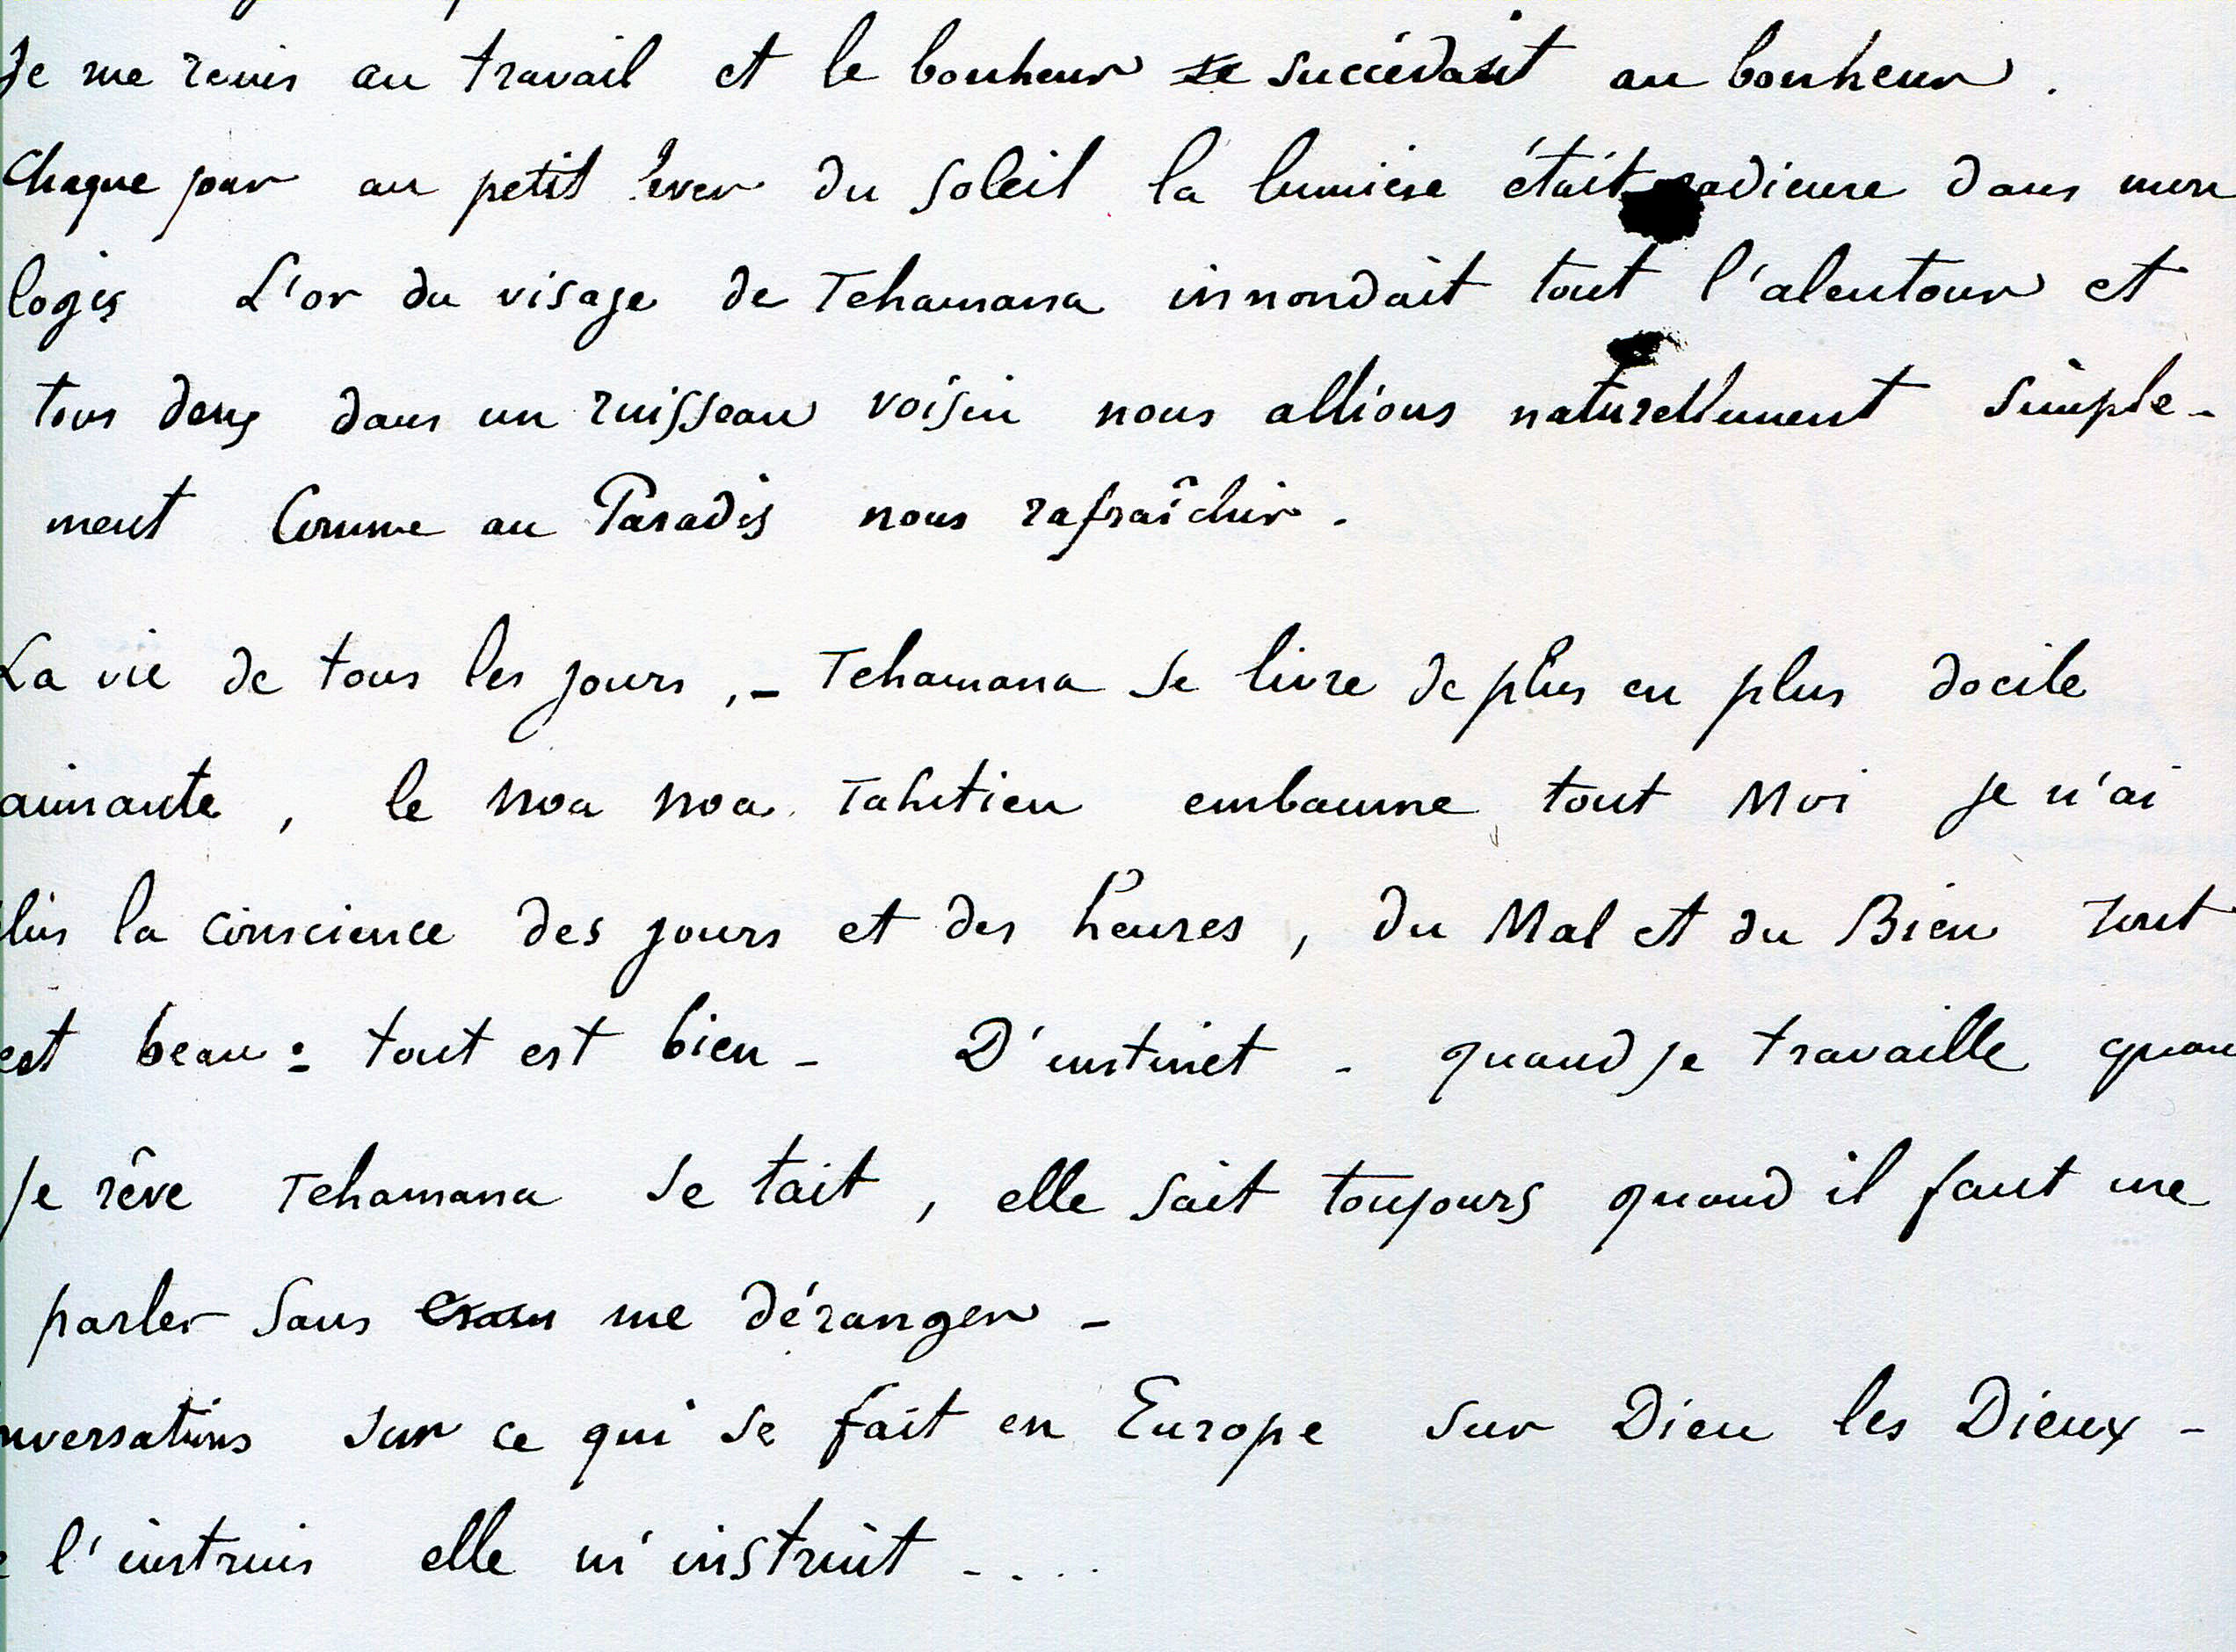 Je me remis au travail et le bonheur se succédait au bonheur.
Chaque jour au petit lever du soleil la lumière était radieuse dans mon
logis L'or du visage de Tehamana innondait tout l'alentour et
tous deux dans un ruisseau voisin nous allions naturellement simple-
ment comme au Paradis nous rafraîchir.
La vie de tous les jours, - Tehamana se livre de plus en plus docile
aimante, le noa noa Tahitien embaume tout Moi je n'ai
plus la conscience des jours et des heures, du Mal et du Bien tout
est beau : tout est bien - D'instinct - quand je travaille quan
je rêve Tehamana se tait, elle sait toujours quand il faut me
parler sans me déranger -
nversations sur ce qui se fait en Europe sur Dieu les Dieux -
e l'instruis elle m'instruit - ....